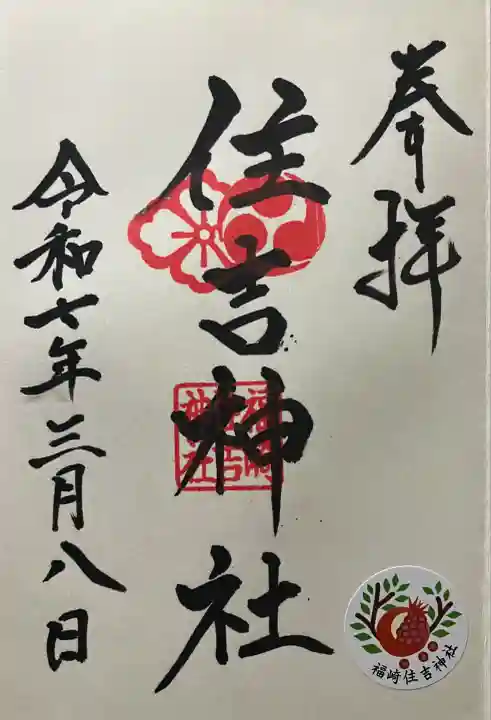 奉拝
住吉神社
福崎住吉神社
令和七年三月八日
福崎住吉神社